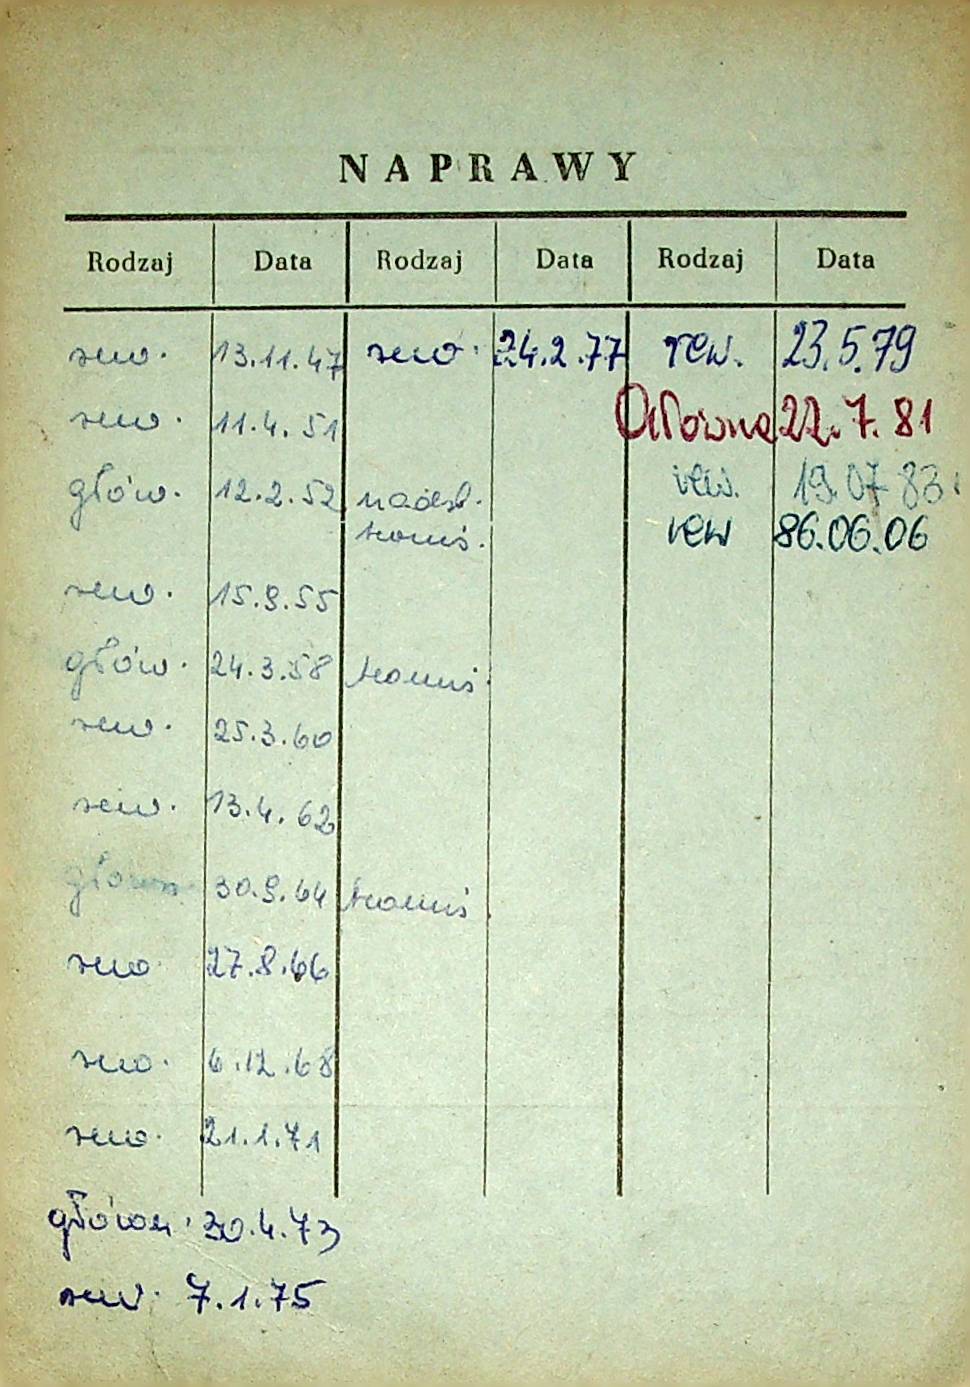 NAPRAWY
Rodzaj Data Rodzaj Data Rodzaj Data
rew. 13.11.47 rew. 24.2.77 rew. 23.5.79
rew. 11.4.51 Główna 22.7.81
głów. 12.2.52 rew. 19.07.83.
rew 86.06.06
rew. 15.9.55
głów. 24.3.58
rew. 25.3.60
rew. 13.4.62
główn. 30.9.64
rew 27.8.66
rew. 6.12.68
rew. 21.1.71
główn. 30.4.73
rew. 7.1.75